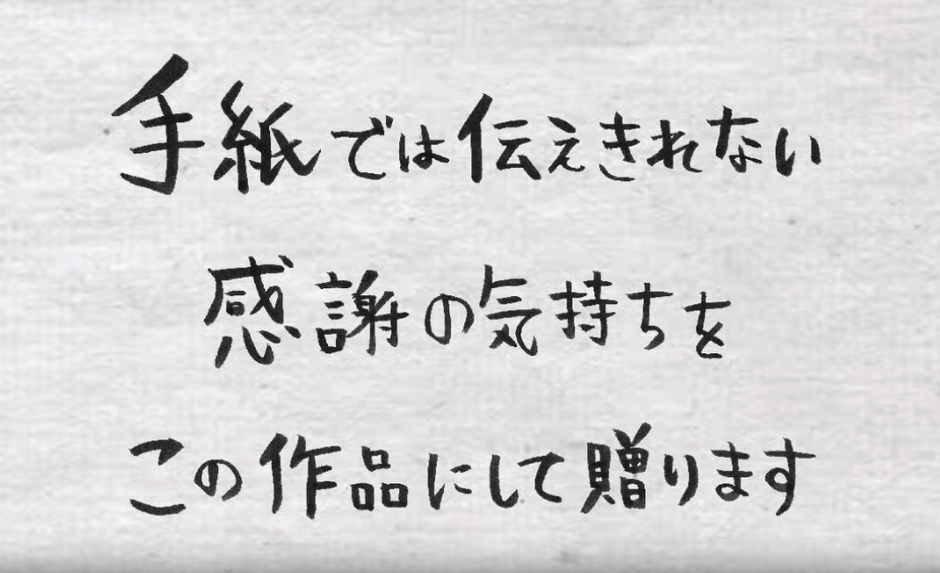 手紙では伝えきれない
感謝の気持ちを
この作品にして贈ります